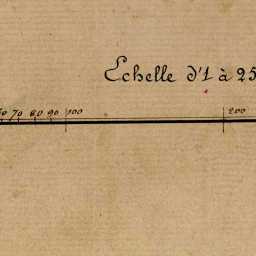 Echelle d'1 à 25
70 80 90 100 200